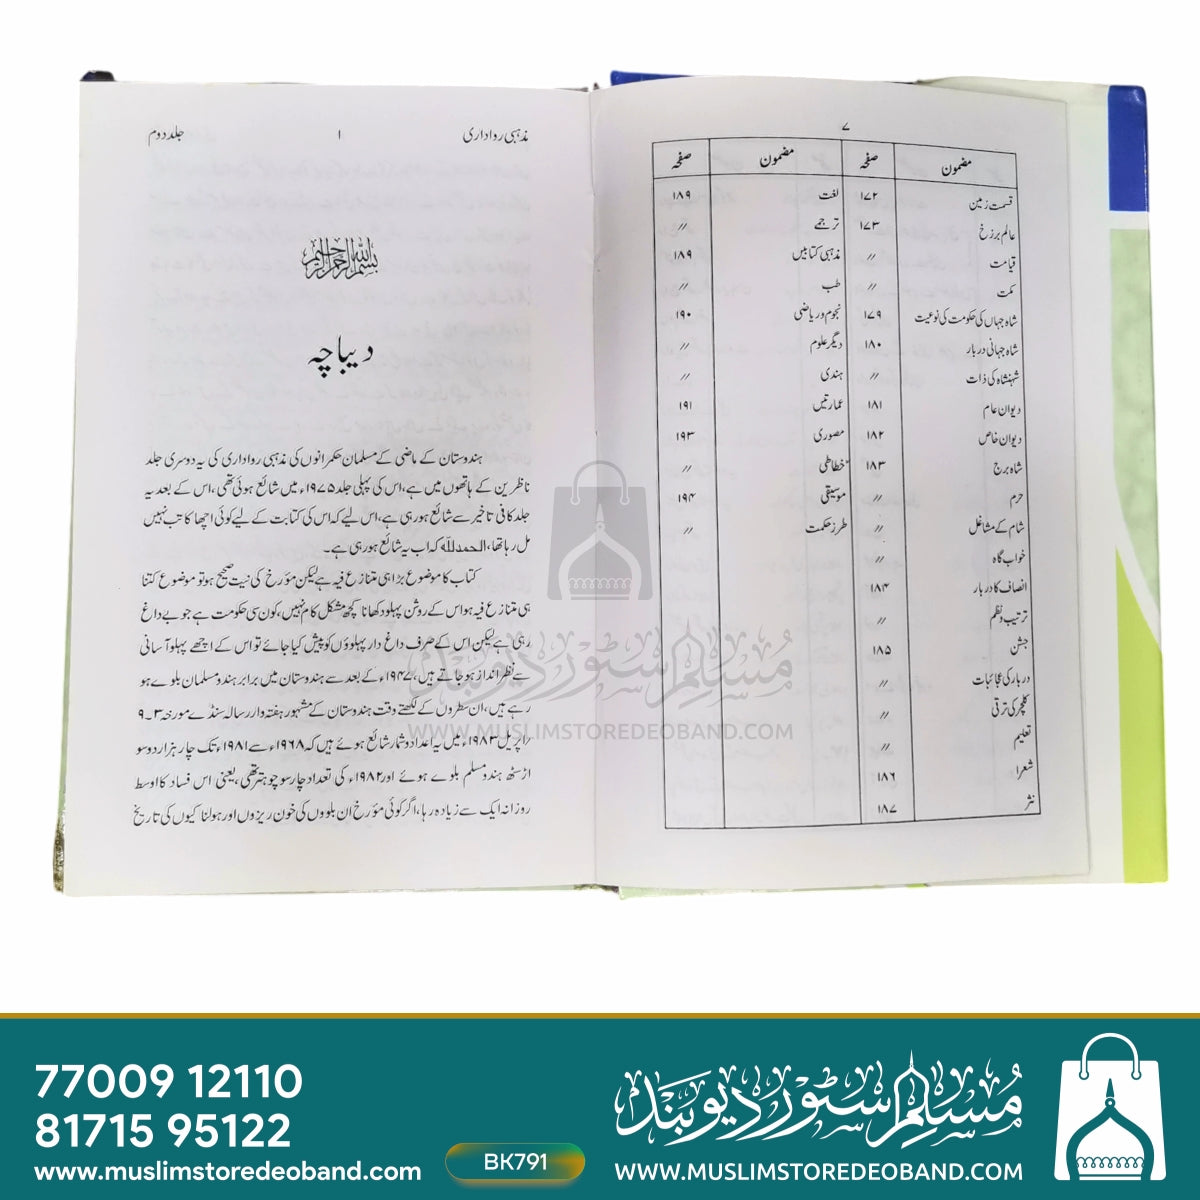 ۷
مضمون صفحہ مضمون صفحہ
قسمت زمین ۱۷۲ لغت ۱۸۹
عالم برزخ ۱۷۳ ترجمے //
قیامت // مذہبی کتابیں ۱۸۹
مکت // طب //
شاہ جہاں کی حکومت کی نوعیت ۱۷۹ نجوم و ریاضی ۱۹۰
شاہ جہانی دربار ۱۸۰ دیگر علوم //
شہنشاہ کی ذات // ہندی //
دیوان عام ۱۸۱ عمارتیں ۱۹۱
دیوان خاص ۱۸۲ مصوری ۱۹۳
شاہ برج ۱۸۳ خطاطی //
حرم // موسیقی ۱۹۴
شام کے مشاغل // طرز حکمت //
خواب گاہ //
انصاف کا دربار ۱۸۴
ترتیب و نظم //
جشن ۱۸۵
دربار کی عجائبات //
کلچر کی ترقی //
تعلیم //
شعرا ۱۸۶
نثر ۱۸۷
مذہبی رواداری ۱ جلد دوم
بسم اللہ الرحمن الرحیم
دیباچہ
ہندوستان کے ماضی کے مسلمان حکمرانوں کی مذہبی رواداری کی یہ دوسری جلد
ناظرین کے ہاتھوں میں ہے، اس کی پہلی جلد ۱۹۷۵ء میں شائع ہوئی تھی، اس کے بعد یہ
جلد کافی تاخیر سے شائع ہو رہی ہے، اس لیے کہ اس کی کتابت کے لیے کوئی اچھا کاتب نہیں
مل رہا تھا، الحمدللہ کہ اب یہ شائع ہو رہی ہے۔
کتاب کا موضوع بڑا ہی متنازع فیہ ہے لیکن مؤرخ کی نیت صحیح ہو تو موضوع کتنا
ہی متنازع فیہ ہو اس کے روشن پہلو دکھانا کچھ مشکل کام نہیں، کون سی حکومت ہے جو بے داغ
رہی ہے لیکن اس کے صرف داغ دار پہلوؤں کو پیش کیا جائے تو اس کے اچھے پہلو آسانی
سے نظر انداز ہو جاتے ہیں، ۱۹۴۷ء کے بعد سے ہندوستان میں برابر ہندو مسلمان بلوے ہو
رہے ہیں، ان سطروں کے لکھتے وقت ہندوستان کے مشہور ہفتہ وار رسالہ سنڈے مورخہ ۳۔۹
اپریل ۱۹۸۳ء میں یہ اعداد و شمار شائع ہوئے ہیں کہ ۱۹۶۸ء سے ۱۹۸۱ء تک چار ہزار دو سو
اڑسٹھ ہندو مسلم بلوے ہوئے اور ۱۹۸۲ء کی تعداد چار سو چوہتر تھی، یعنی اس فساد کا اوسط
روزانہ ایک سے زیادہ رہا، اگر کوئی مؤرخ ان بلووں کی خون ریزوں اور ہولناکیوں کی تاریخ
مسلم سٹور دیوبند
WWW.MUSLIMSTOREDEOBAND.COM
77009 12110
81715 95122
www.muslimstoredeoband.com
BK791
مسلم سٹور دیوبند
WWW.MUSLIMSTOREDEOBAND.COM